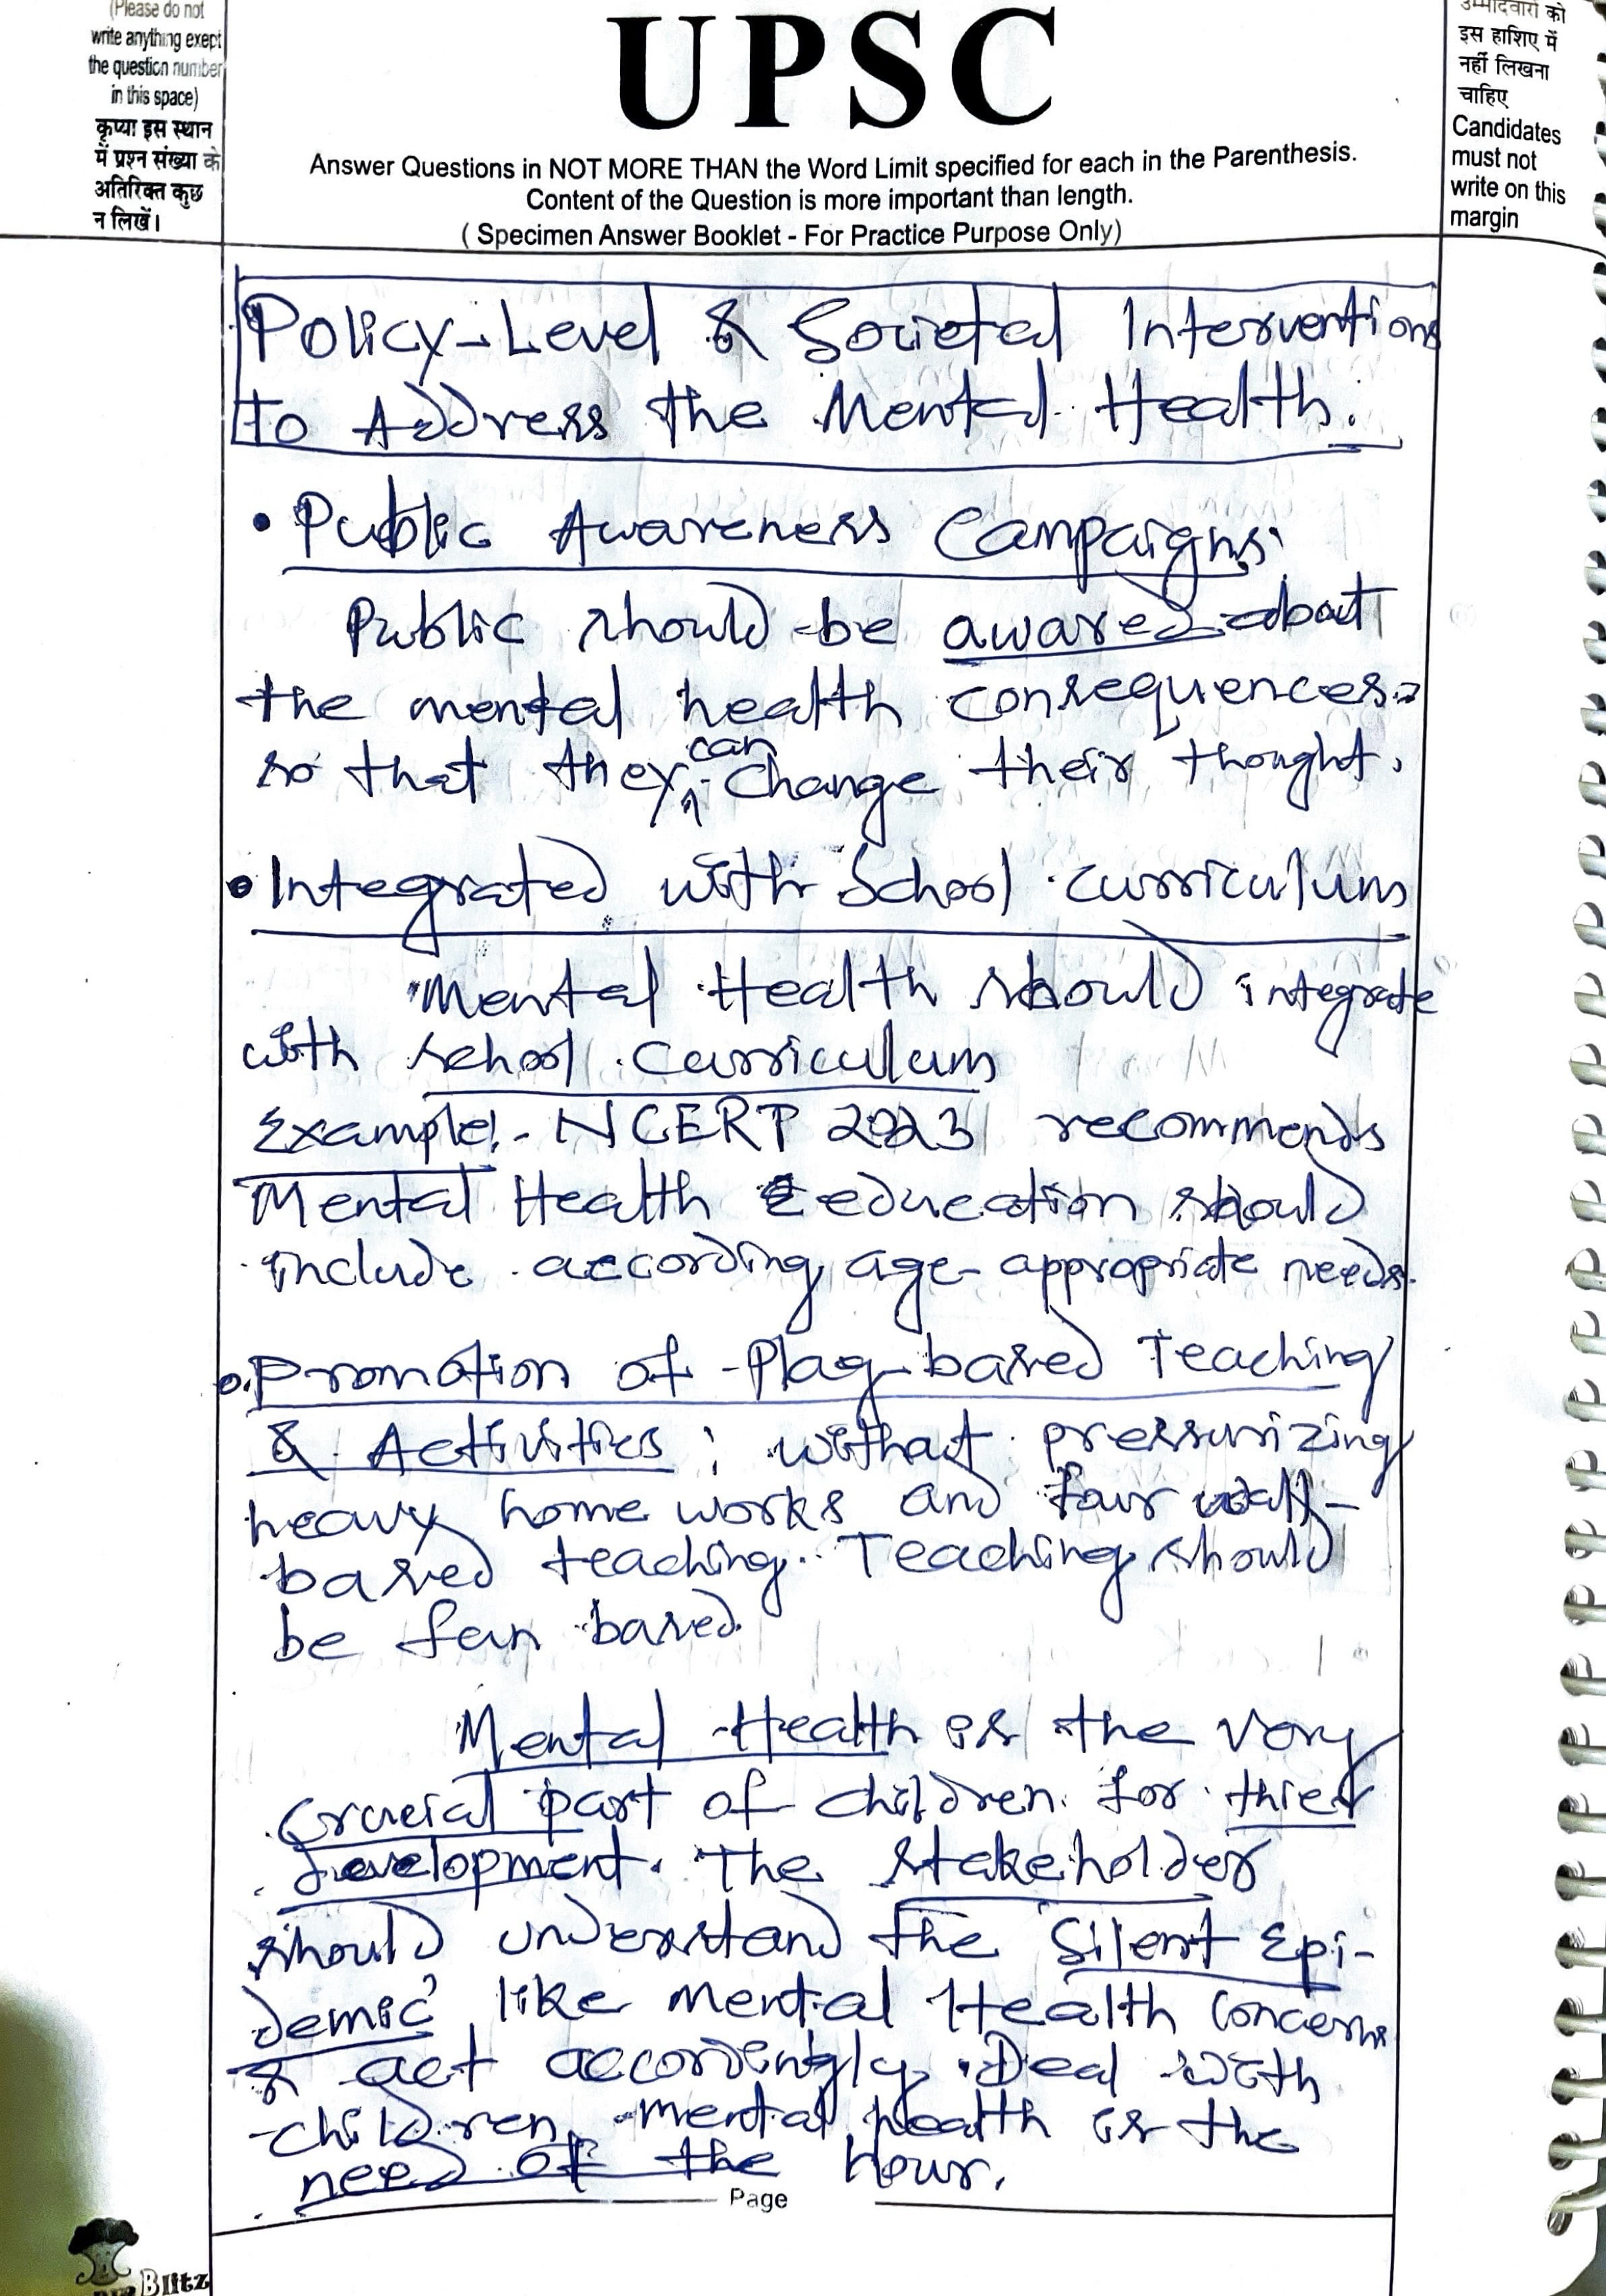 (Please do not
write anything exept
the question number
in this space)
कृप्या इस स्थान
में प्रश्न संख्या के
अतिरिक्त कुछ
न लिखें।
UPSC
Answer Questions in NOT MORE THAN the Word Limit specified for each in the Parenthesis.
Content of the Question is more important than length.
( Specimen Answer Booklet - For Practice Purpose Only)
उम्मीदवारों को
इस हाशिए में
नहीं लिखना
चाहिए
Candidates
must not
write on this
margin
Policy-Level & Societal Interventions
to Address the Mental Health.
• Public Awareness Campaigns:
Public should be aware about
the mental health consequences
so that they can change their thought.
• Integrated with School curriculum
Mental Health should integrate
with school curriculum
Example:- NCERT 2023 recommends
Mental Health education should
include according age-appropriate needs.
• Promotion of Play-based Teaching
& Activities : without pressurizing
heavy home works and four wall-
based teaching. Teaching should
be fun based.
Mental Health is the very
crucial part of children for thier
development. The stakeholder
should understand the 'Silent Epi-
demic' like mental Health concerns
& act accordingly. Deal with
children mental health is the
need of the hour.
Page
Blitz